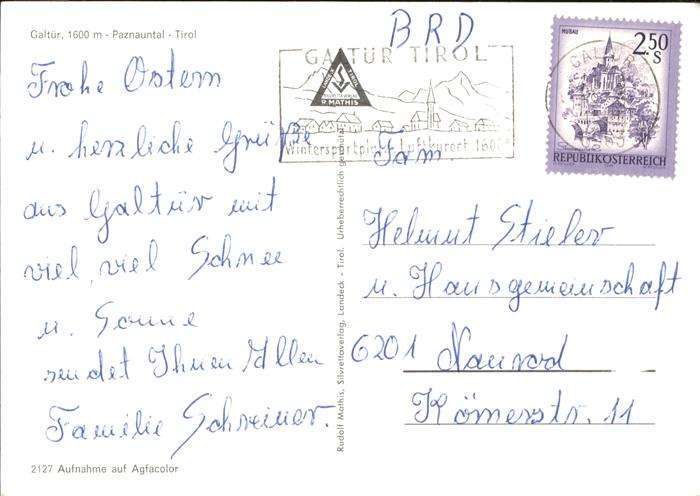 Galtür, 1600 m - Paznauntal - Tirol
Frohe Ostern
u. herzliche Grüße
aus Galtür mit
viel, viel Schnee
u. Sonne
sendet Ihnen Allen
Familie Schreiner.
2127 Aufnahme auf Agfacolor
Rudolf Mathis, Silvrettaverlag, Landeck - Tirol. Urheberrechtlich geschützt
BRD
GALTÜR TIROL
R MATHIS
Wintersportplatz Luftkurort 1600
MURAU
2.50
S
REPUBLIK ÖSTERREICH
Fam.
Helmut Stieler
u. Hausgemeinschaft
6201 Naurod
Römerstr. 11